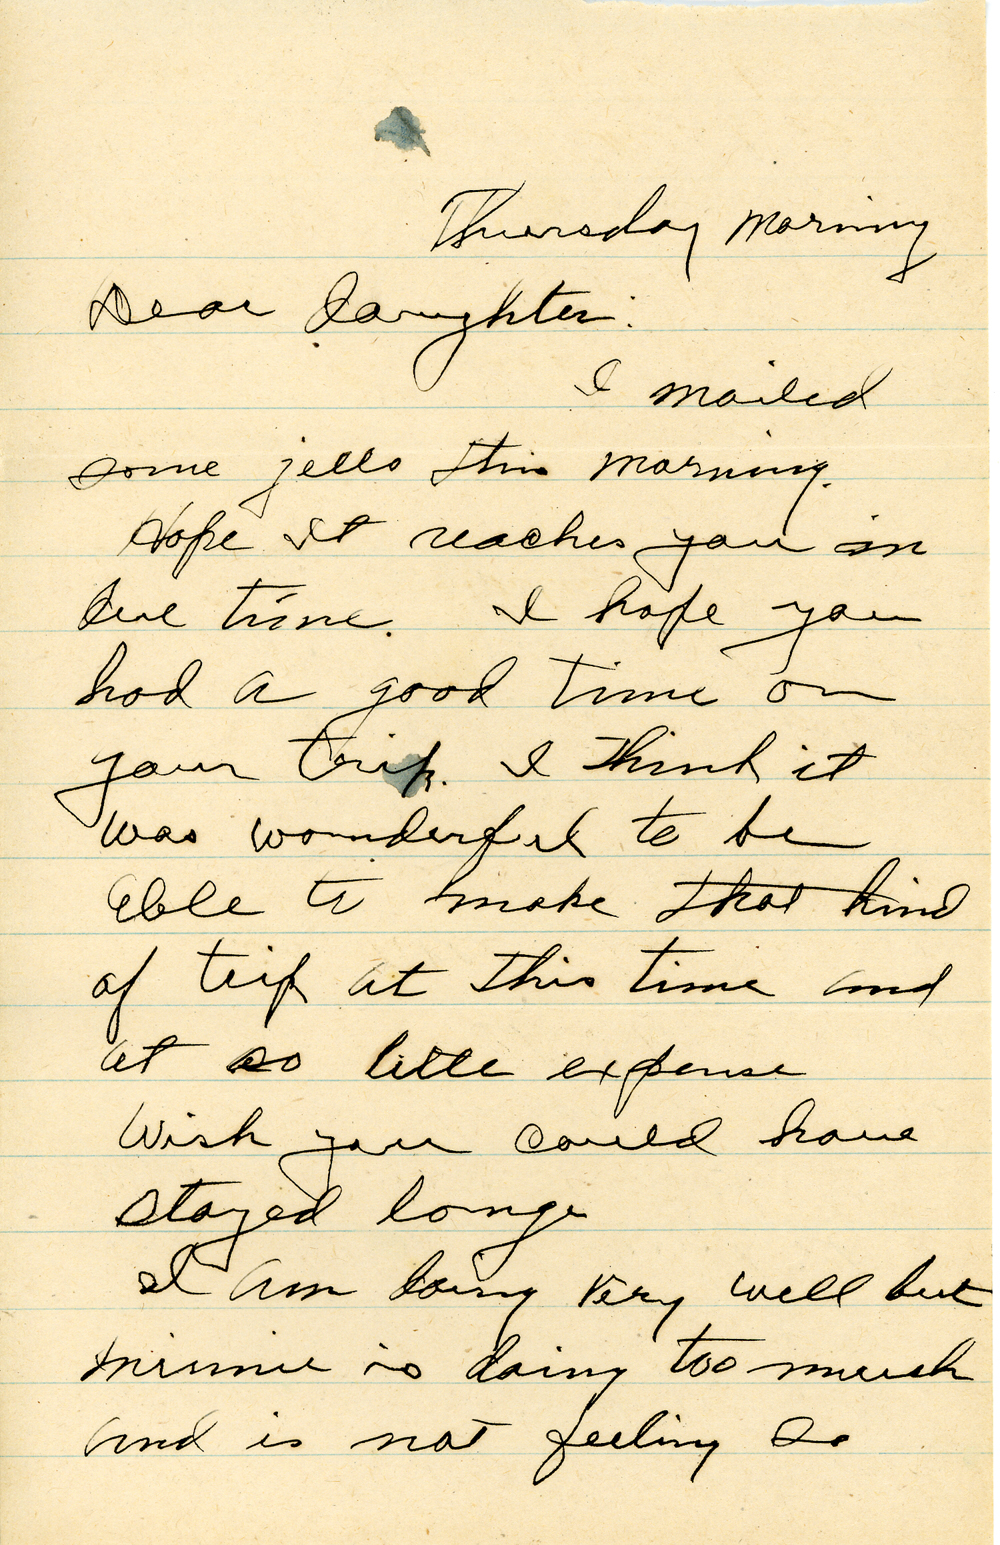 Thursday morning
Dear daughter:
I mailed
some jello this morning.
Hope it reaches you in
due time. I hope you
had a good time on
your trip. I think it
was wonderful to be
able to make that kind
of trip at this time and
at so little expense
Wish you could have
stayed longe
I am doing very well but
minnie is doing too much
and is not feeling so